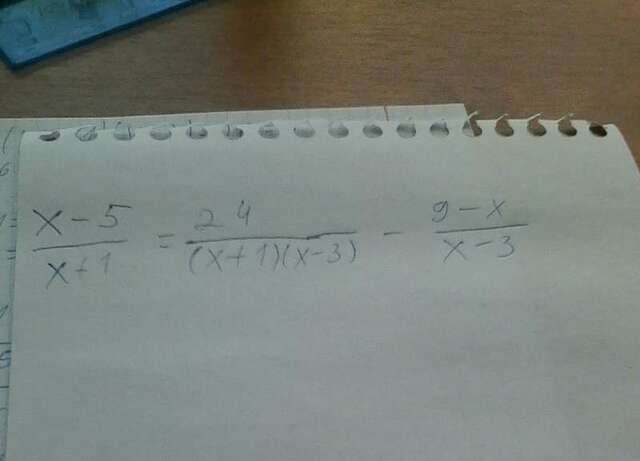 x-5/x+1 = 24/(x+1)(x-3) - 9-x/x-3